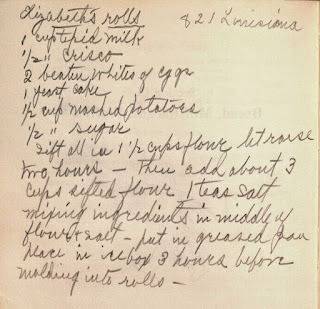 Lizabeth's rolls 821 Louisiana
1 cup tepid milk
1/2 " Crisco
2 beaten whites of eggs
1 yeast cake
1/2 cup mashed potatoes
1/2 " sugar
Sift all in 1 1/2 cups flour let raise
two hours — then add about 3
cups sifted flour 1 teas salt
mixing ingredients in middle of
flour & salt — put in greased pan
place in icebox 3 hours before
molding into rolls —